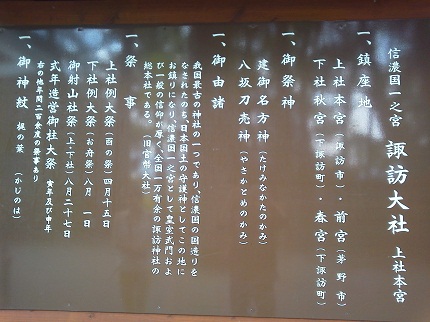 信濃国一之宮 諏訪大社 上社本宮
一、鎮座地
上社本宮(諏訪市)・前宮(茅野市)
下社秋宮(下諏訪町)・春宮(下諏訪町)
一、御祭神
建御名方神(たけみなかたのかみ)
八坂刀売神(やさかとめのかみ)
一、御由緒
我国最古の神社の一つであり、信濃国の国造りを
なされたのち、日本国土の守護神としてこの地に
お鎮りになり、信濃国一之宮として皇室武門およ
び一般の信仰が厚く、全国一万有余の諏訪神社の
総本社である。(旧官幣大社)
一、祭事
上社例大祭(酉の祭)四月十五日
下社例大祭(お舟祭)八月一日
御射山社祭(上・下社)八月二十七日
式年造営御柱大祭 寅年及び申年
右の他年間二百余度の祭事あり
一、御神紋 梶の葉(かじのは)